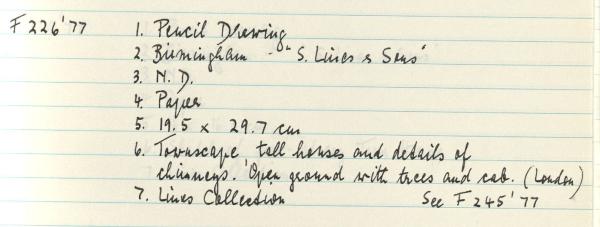 F 226'77 1. Pencil Drawing
2. Birmingham - "S. Lines & Sons"
3. N. D.
4. Paper
5. 19.5 x 29.7 cm
6. Townscape tall houses and details of
chimneys. Open ground with trees and cab. (London)
7. Lines Collection See F 245'77